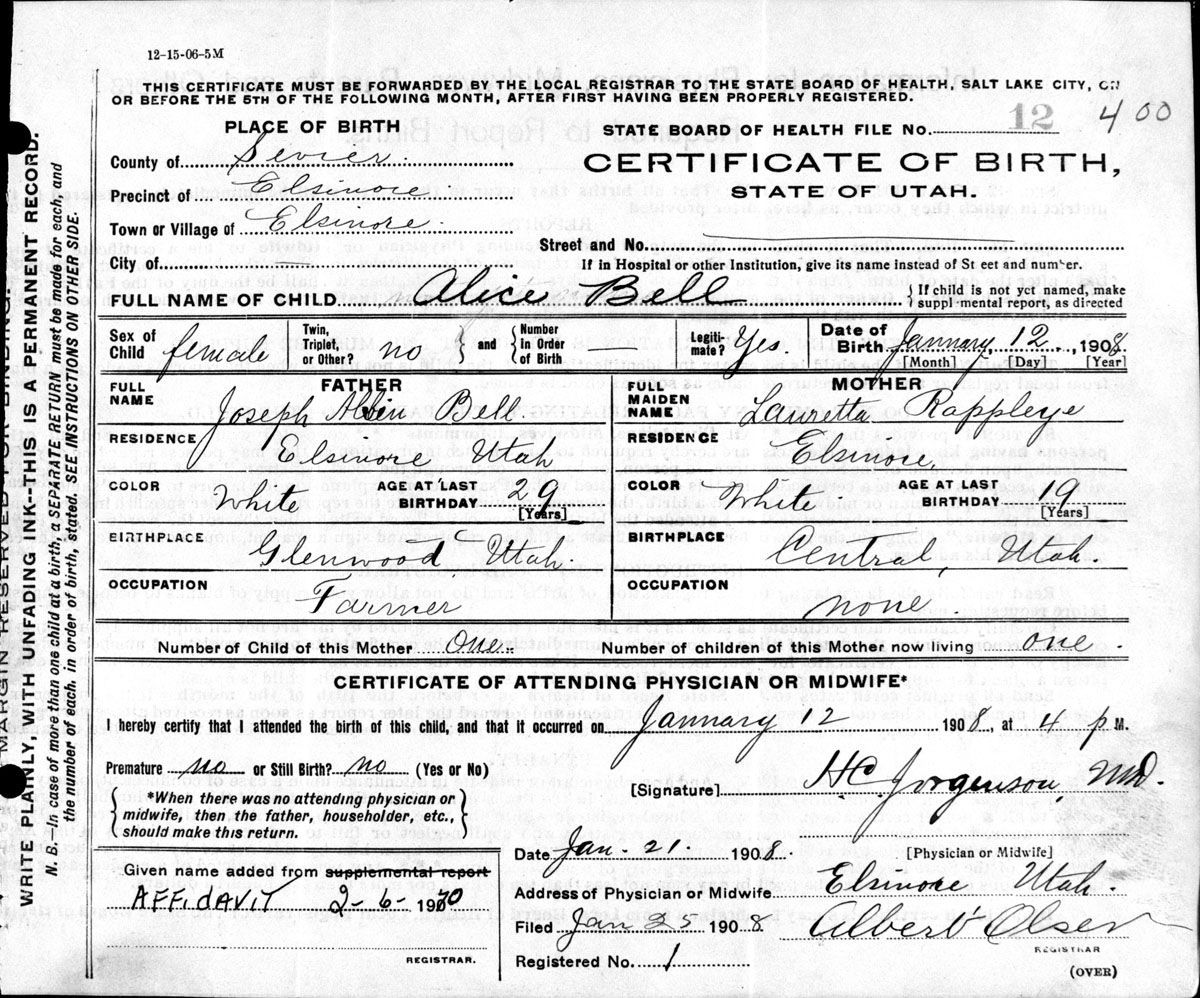 12-15-06-5M
THIS CERTIFICATE MUST BE FORWARDED BY THE LOCAL REGISTRAR TO THE STATE BOARD OF HEALTH, SALT LAKE CITY, ON
OR BEFORE THE 5TH OF THE FOLLOWING MONTH, AFTER FIRST HAVING BEEN PROPERLY REGISTERED.
PLACE OF BIRTH
STATE BOARD OF HEALTH FILE No. 12 400
County of Sevier
CERTIFICATE OF BIRTH,
Precinct of Elsinore
STATE OF UTAH.
Town or Village of Elsinore
Street and No.
City of
If in Hospital or other Institution, give its name instead of St eet and number.
FULL NAME OF CHILD. Alice Bell
If child is not yet named, make
suppl-mental report, as directed
Sex of Child female
Twin, Triplet, or Other? no and Number In Order of Birth
Legiti-mate? Yes.
Date of Birth January 12, 1908
[Month] [Day] [Year]
FATHER
FULL NAME Joseph Albin Bell
RESIDENCE Elsinore, Utah
COLOR White AGE AT LAST BIRTHDAY 29 [Years]
BIRTHPLACE Glenwood, Utah.
OCCUPATION Farmer
MOTHER
FULL MAIDEN NAME Lauretta Rappleye
RESIDENCE Elsinore,
COLOR White AGE AT LAST BIRTHDAY 19 [Years]
BIRTHPLACE Central, Utah.
OCCUPATION none
Number of Child of this Mother One Number of children of this Mother now living one.
CERTIFICATE OF ATTENDING PHYSICIAN OR MIDWIFE*
I hereby certify that I attended the birth of this child, and that it occurred on January 12 1908, at 4 P M.
Premature no or Still Birth? no (Yes or No)
[Signature] HC Jorgenson, MD.
*When there was no attending physician or
midwife, then the father, householder, etc.,
should make this return.
Date Jan. 21. 1908. [Physician or Midwife]
Given name added from supplemental report
AFFIDAVIT 2-6-1960
REGISTRAR.
Address of Physician or Midwife Elsinore Utah.
Filed Jan 25 1908 Albert Olsen
REGISTRAR
Registered No. 1
(OVER)
MARGIN RESERVED FOR BINDING.
WRITE PLAINLY, WITH UNFADING INK--THIS IS A PERMANENT RECORD.
N. B.—In case of more than one child at a birth, a SEPARATE RETURN must be made for each, and
the number of each, in order of birth, stated. SEE INSTRUCTIONS ON OTHER SIDE.